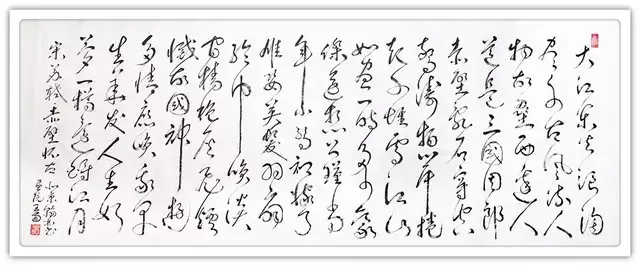 大江东去浪淘
尽千古风流人
物故垒西边人
道是三國周郎
赤壁乱石穿空
惊涛拍岸捲
起千堆雪江山
如画一时多少豪
傑遥想公瑾当
年小乔初嫁了
雄姿英發羽扇
纶巾谈笑
间樯橹灰飞烟
灭故國神游
多情应笑我早
生华发人生如
梦一樽还酹江月
宋苏轼赤壁怀古